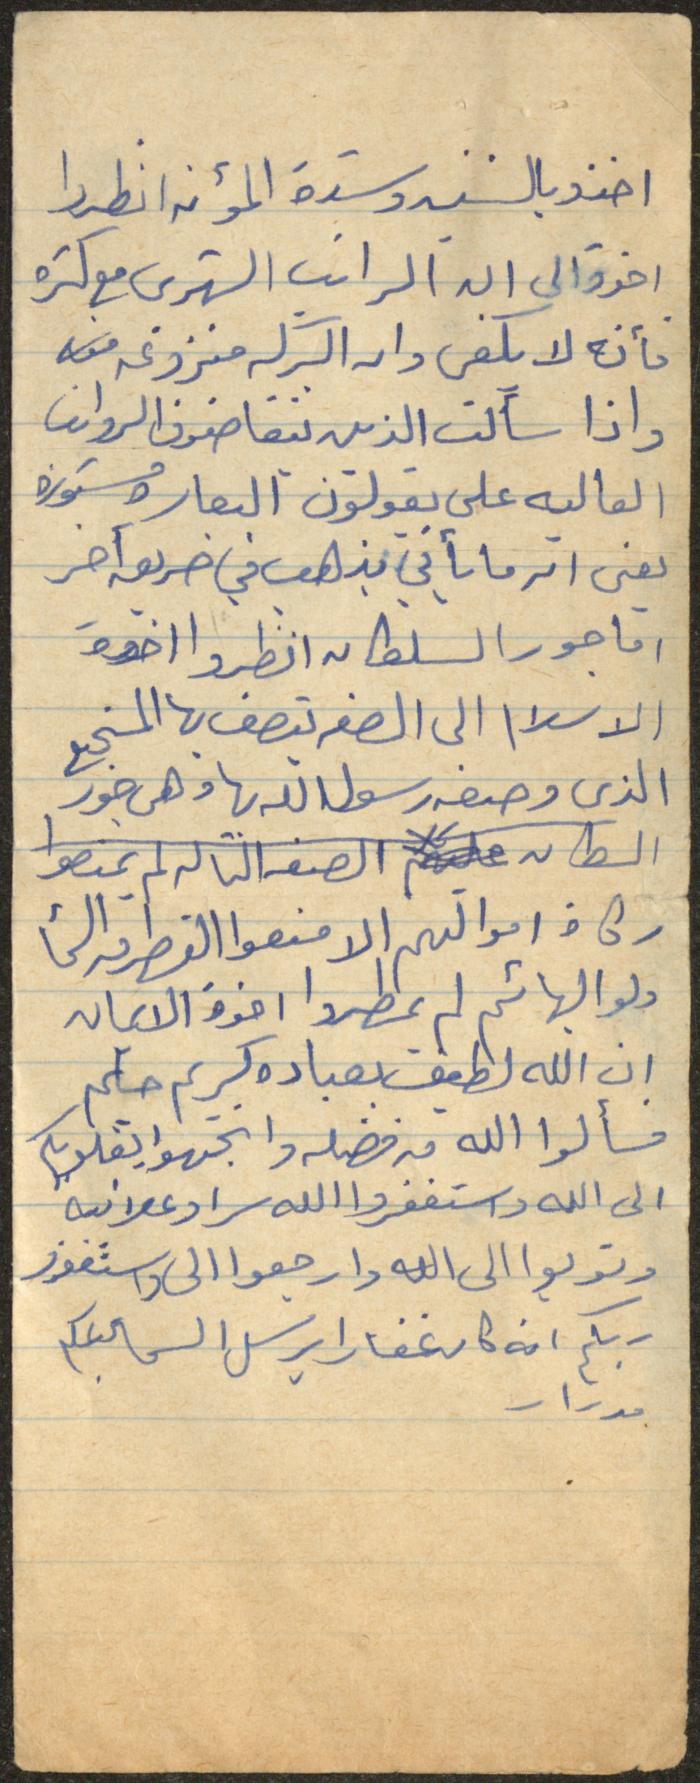 اخذو بالسنين وشدة المؤنه انظروا
اخوة الى ان الراتب الشهرى مع كثره
فأنه لا يكفى وان البركه منزوعه منه
واذا سألت الذين يتقاضون الرواتب
العاليه على يقولون البعاره مستوره
يعنى انه ما يأتي يذهب في ضريعه أخر
اما جور السلطان انظروا اخوة
الاسلام الى الصفه تيصف بها المنجمع
الذى وصفه رسول الله بها وهى جور
السطان الصفه التاله لم يمنعوا
زكاة اموالهم الا منعوا القطر من السما
ولو البهائم لم يمطروا اخوة الايمان
ان الله لطيف بعباده كريم حليم
فسألوا الله من فضله واتجهوا بقلوبكم
الى الله وستغفروا الله سرا وعلانيه
وتوبوا الى الله وارجعوا الى واستغفرو
ربكم انه كان غفارا يرسل السما عليكم
مدرار